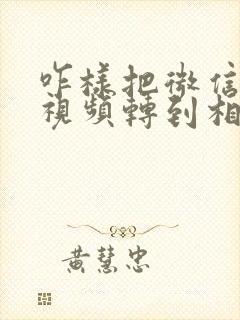 咋樣把微信
視頻轉到相
黃慧忠